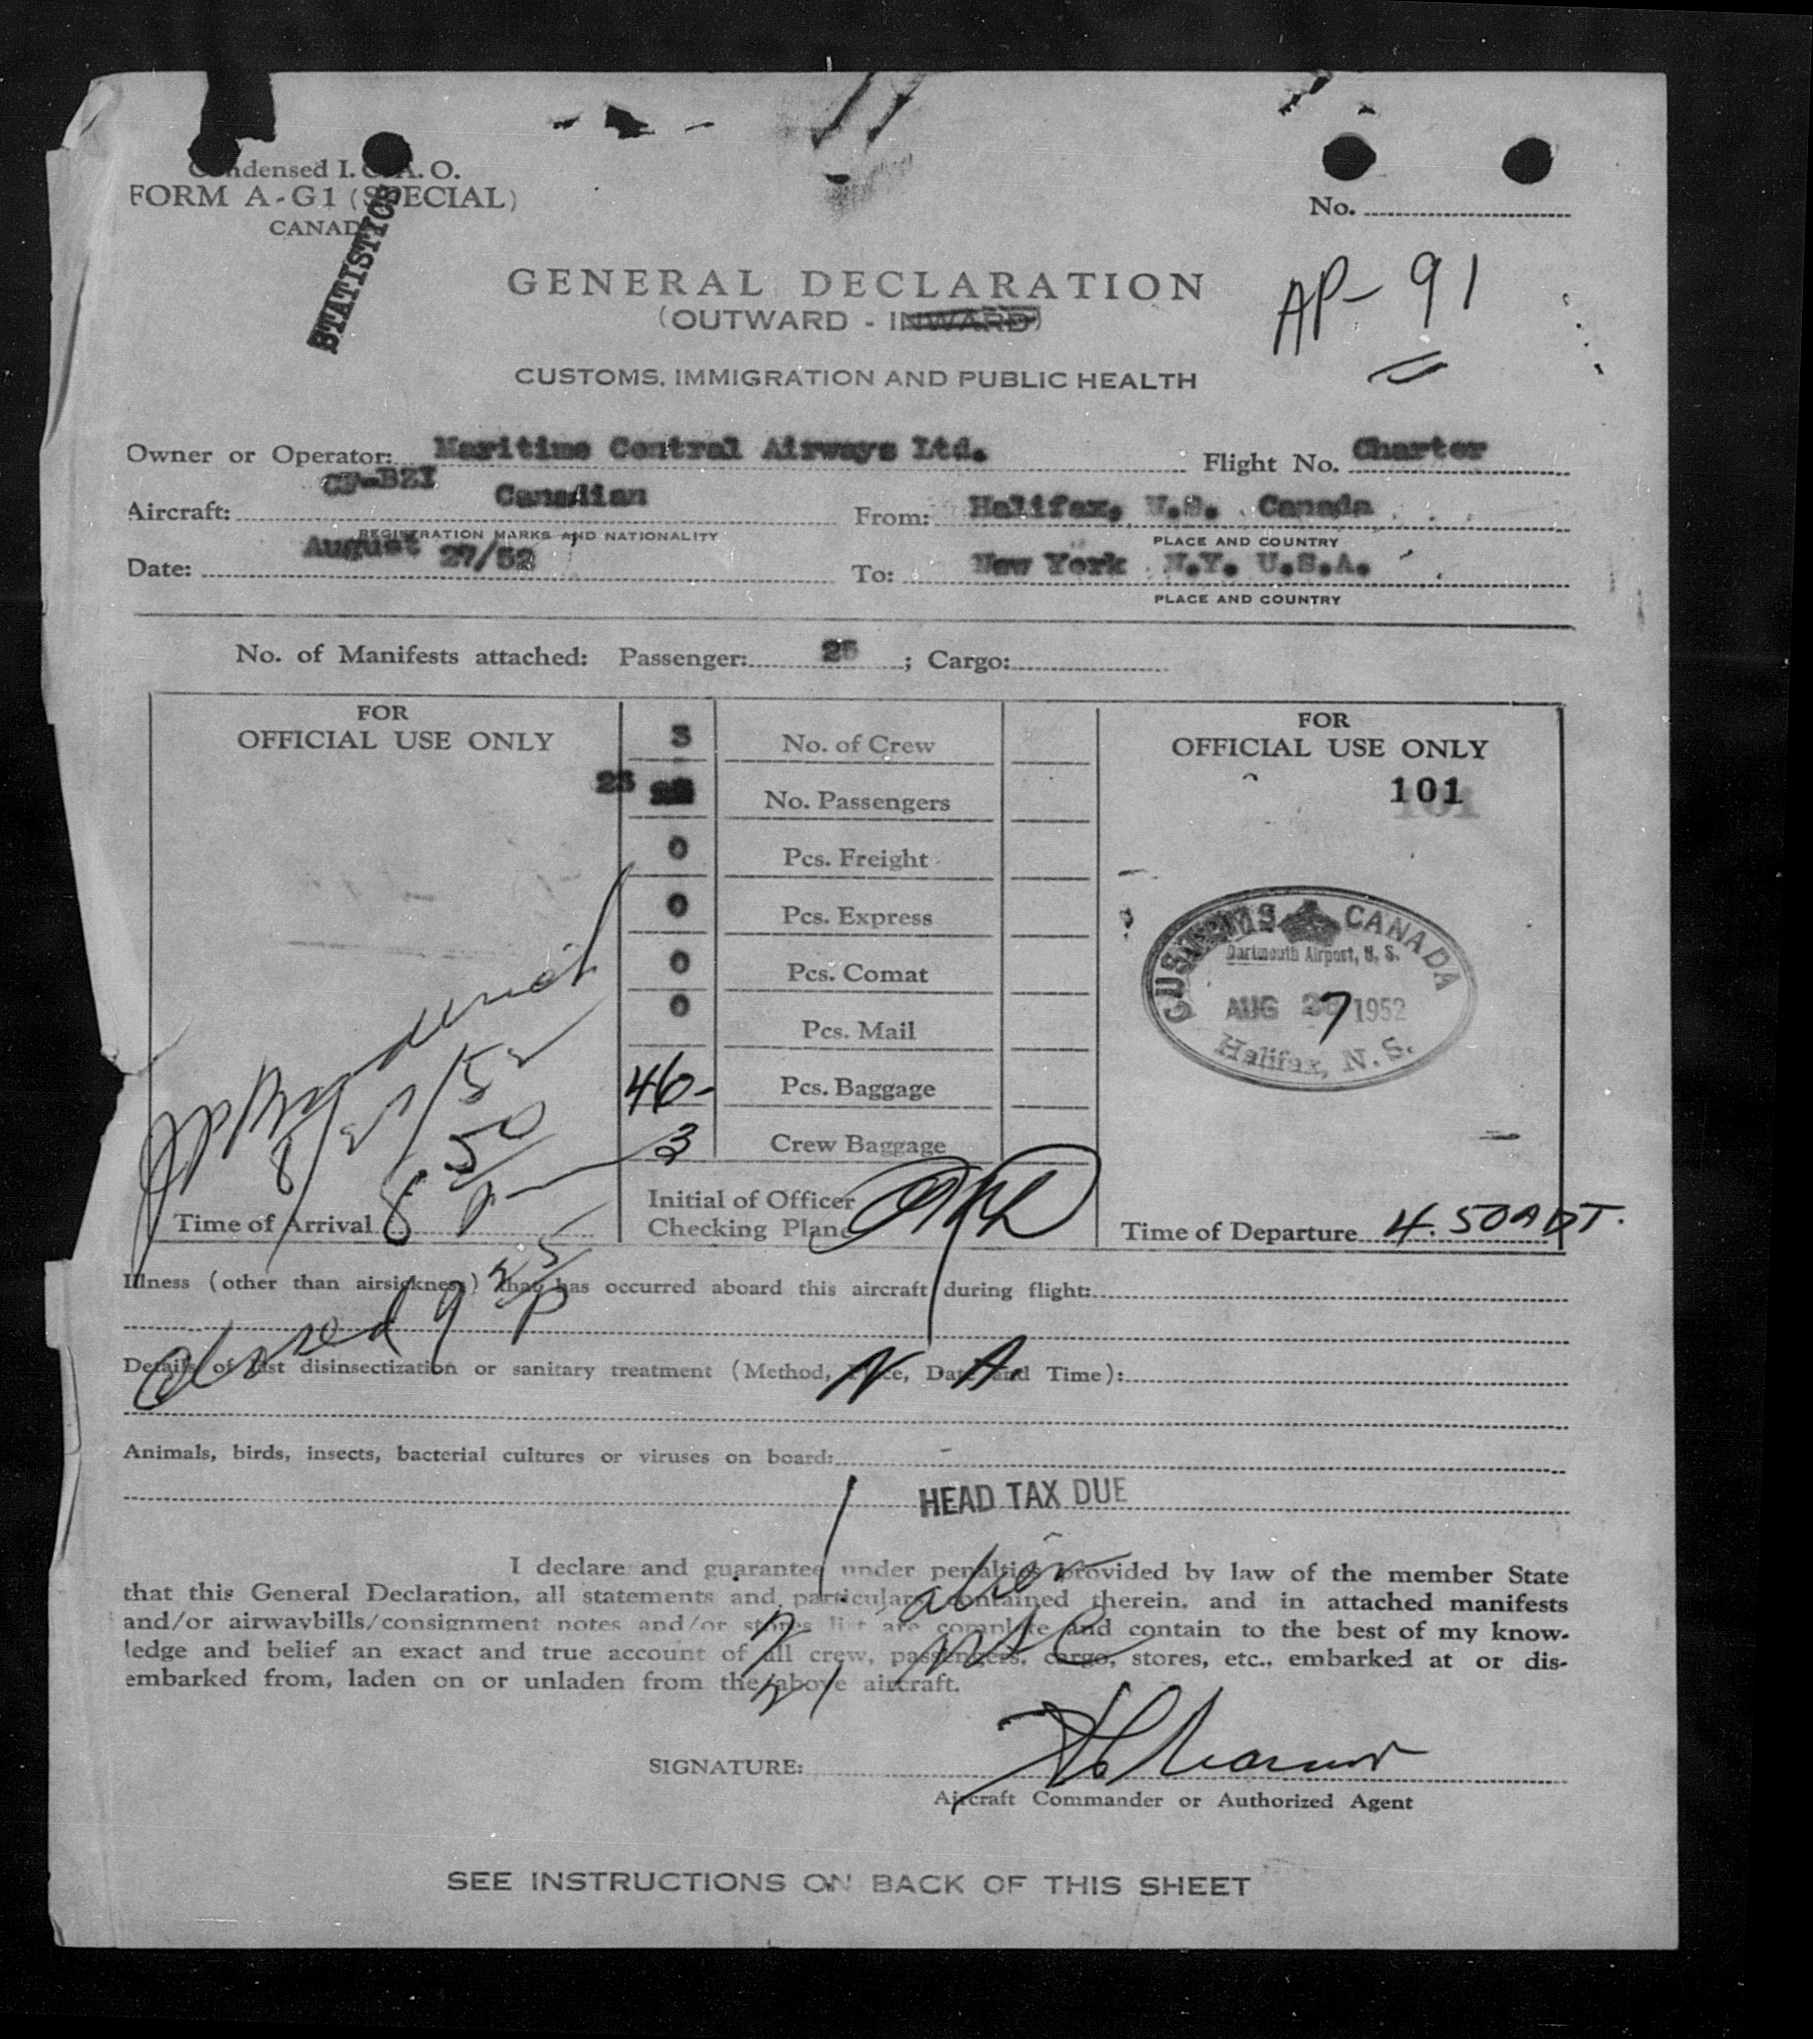 Condensed I. C. A. O.
FORM A-G1 (SPECIAL)
CANADA
STATISTICS
No.
AP-91
GENERAL DECLARATION
(OUTWARD - INWARD)
CUSTOMS, IMMIGRATION AND PUBLIC HEALTH
Owner or Operator: Maritime Central Airways Ltd. Flight No. Charter
Aircraft: CF-BZI Canadian From: Halifax, N.S. Canada
REGISTRATION MARKS AND NATIONALITY PLACE AND COUNTRY
Date: August 27/52 To: New York N.Y. U.S.A.
PLACE AND COUNTRY
No. of Manifests attached: Passenger: 25 ; Cargo:
FOR
OFFICIAL USE ONLY
3 No. of Crew
No. Passengers
0 Pcs. Freight
0 Pcs. Express
0 Pcs. Comat
0 Pcs. Mail
46- Pcs. Baggage
3 Crew Baggage
Initial of Officer
Checking Plane
8 50 P
Time of Arrival
FOR
OFFICIAL USE ONLY
101
CUSTOMS CANADA
Dartmouth Airport, N. S.
AUG 27 1952
Halifax, N. S.
Time of Departure 4.50 ADT.
Illness (other than airsickness) that has occurred aboard this aircraft during flight:
Details of last disinsectization or sanitary treatment (Method, Place, Date and Time):
N A
Animals, birds, insects, bacterial cultures or viruses on board: -
HEAD TAX DUE
I declare and guarantee under penalties provided by law of the member State
that this General Declaration, all statements and particulars contained therein, and in attached manifests
and/or airwaybills/consignment notes and/or stores list are complete and contain to the best of my know-
ledge and belief an exact and true account of all crew, passengers, cargo, stores, etc., embarked at or dis-
embarked from, laden on or unladen from the above aircraft.
alien
SIGNATURE:
Aircraft Commander or Authorized Agent
SEE INSTRUCTIONS ON BACK OF THIS SHEET